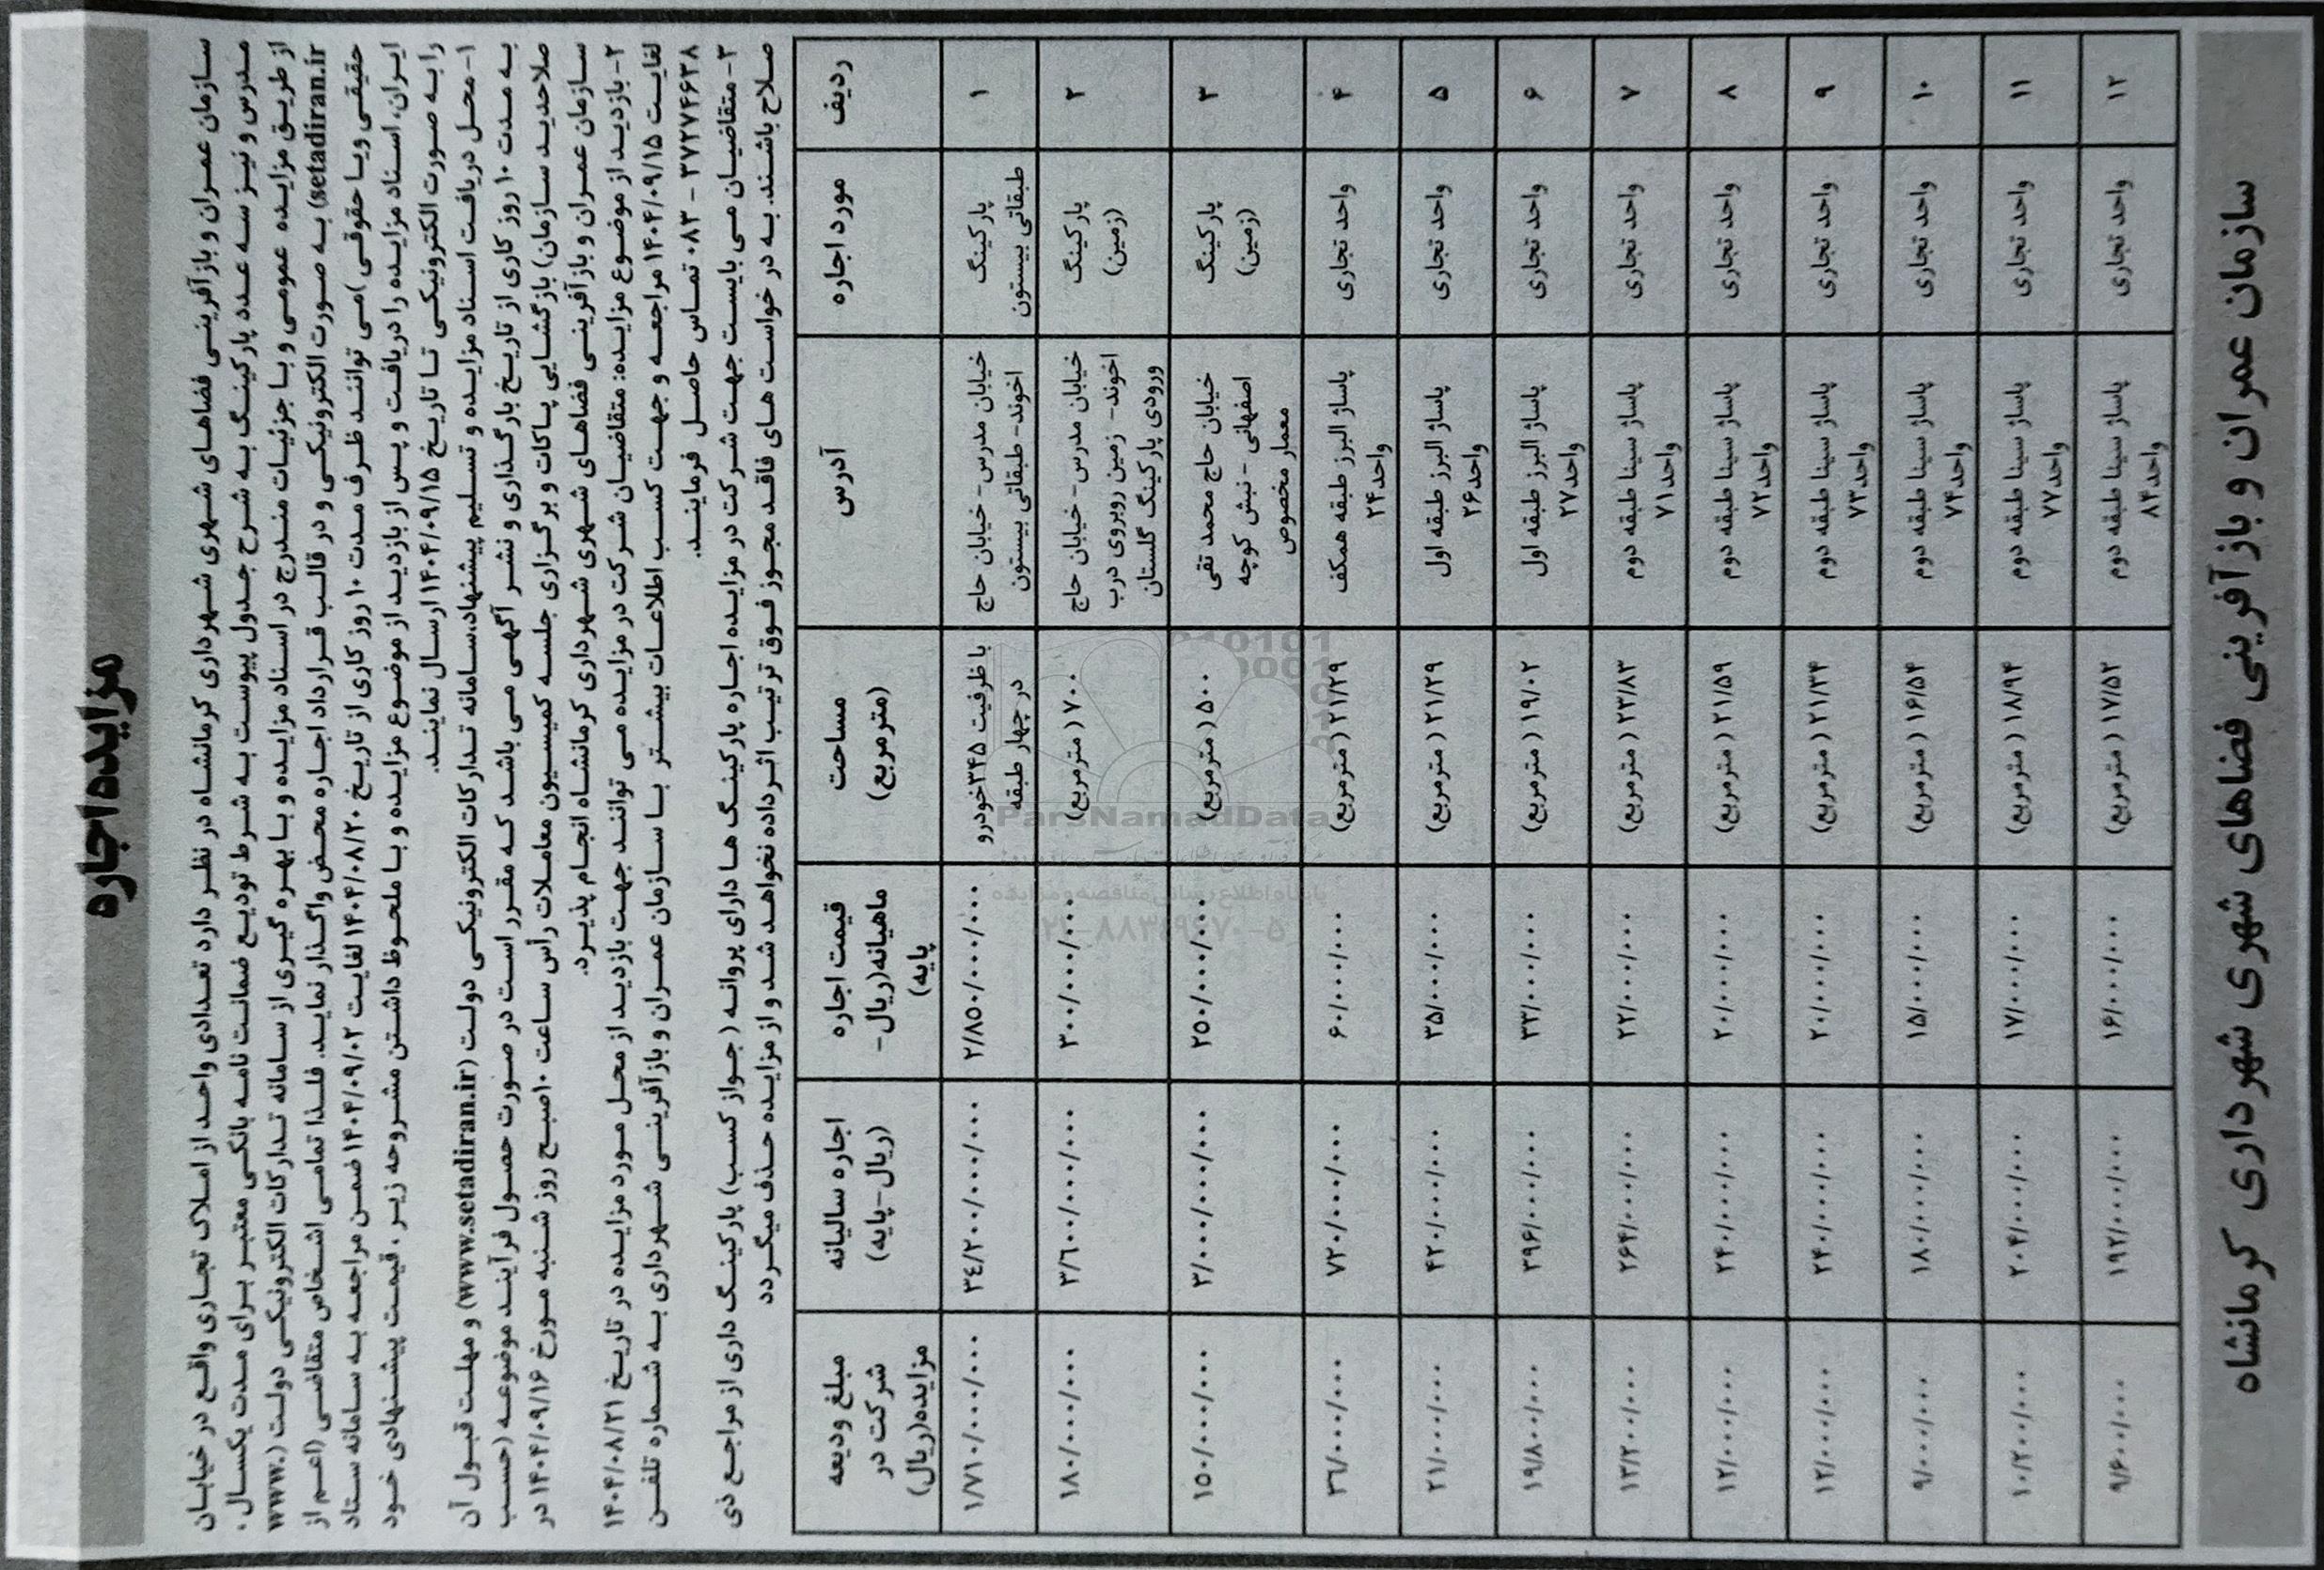 مزایده اجاره
سازمان عمران و بازآفرینی فضاهای شهری شهرداری کرمانشاه در نظر دارد تعدادی واحد از املاک تجاری واقع در خیابان
مدرس و نیز سه عدد پارکینگ به شرح جدول پیوست به شرط تودیع ضمانت نامه بانکی معتبر برای مدت یکسال .
از طریق مزایده عمومی و با جزئیات مندرج در اسناد مزایده و با بهره گیری از سامانه تدارکات الکترونیکی دولت (.www
setadiran.ir) به صورت الکترونیکی و در قالب قرارداد اجاره محض واگذار نماید. فلذا تمامی اشخاص متقاضی (اعم از
حقیقی ویا حقوقی )می توانند ظرف مدت ۱۰ روز کاری از تاریخ ۱۴۰۴/۰۸/۲۰ لغایت ۱۴۰۴/۰۹/۰۲ ضمن مراجعه به سامانه ستاد
ایران، اسناد مزایده را دریافت و پس از بازدید از موضوع مزایده و با ملحوظ داشتن مشروحه زیر ، قیمت پیشنهادی خود
را به صورت الکترونیکی تا تاریخ ۱۴۰۴/۰۹/۱۵ ارسال نمایند.
۱- محل دریافت اسناد مزایده و تسلیم پیشنهاد،سامانه تدارکات الکترونیکی دولت (www.setadiran.ir) و مهلت قبول آن
به مدت ۱۰ روز کاری از تاریخ بارگذاری و نشر آگهی می باشد که مقرر است در صورت حصول فرآیند موضوعه (حسب
صلاحدید سازمان) بازگشایی پاکات و برگزاری جلسه کمیسیون معاملات رأس ساعت ۱۰صبح روز شنبه مورخ ۱۴۰۴/۰۹/۱۶ در
سازمان عمران و بازآفرینی فضاهای شهری شهرداری کرمانشاه انجام پذیرد.
۲- بازدید از موضوع مزایده: متقاضیان شرکت در مزایده می توانند جهت بازدید از محل مورد مزایده در تاریخ ۱۴۰۴/۰۸/۲۱
لغایت ۱۴۰۴/۰۹/۱۵ مراجعه و جهت کسب اطلاعات بیشتر با سازمان عمران و بازآفرینی شهرداری به شماره تلفن
۳۷۲۷۴۶۳۸ - ۰۸۳ تماس حاصل فرمایند.
۳- متقاضیان می بایست جهت شرکت در مزایده اجاره پارکینگ ها دارای پروانه ( جواز کسب) پارکینگ داری از مراجع ذی
صلاح باشند. به درخواست های فاقد مجوز فوق ترتیب اثر داده نخواهد شد و از مزایده حذف میگردد
ردیف مورد اجاره آدرس مساحت (مترمربع) قیمت اجاره ماهیانه(ریال- پایه) اجاره سالیانه (ریال-پایه) مبلغ ودیعه شرکت در مزایده(ریال)
۱ پارکینگ طبقاتی بیستون خیابان مدرس- خیابان حاج اخوند- طبقاتی بیستون با ظرفیت ۳۴۵خودرو در چهار طبقه ۲/۸۵۰/۰۰۰/۰۰۰ ۳٤/۲۰۰/۰۰۰/۰۰۰ ۱/۷۱۰/۰۰۰/۰۰۰
۲ پارکینگ (زمین) خیابان مدرس- خیابان حاج اخوند- زمین روبروی درب ورودی پارکینگ گلستان ۷۰۰ ( مترمربع) ۳۰۰/۰۰۰/۰۰۰ ۳/٦۰۰/۰۰۰/۰۰۰ ۱۸۰/۰۰۰/۰۰۰
۳ پارکینگ (زمین) خیابان حاج محمد تقی اصفهانی - نبش کوچه معمار مخصوص ۵۰۰ ( مترمربع) ۲۵۰/۰۰۰/۰۰۰ ۳/۰۰۰/۰۰۰/۰۰۰ ۱۵۰/۰۰۰/۰۰۰
۴ واحد تجاری پاساژ البرز طبقه همکف واحد ۲۴ ۲۱/۲۹ ( مترمربع) ۶۰/۰۰۰/۰۰۰ ۷۲۰/۰۰۰/۰۰۰ ۳٦/۰۰۰/۰۰۰
۵ واحد تجاری پاساژ البرز طبقه اول واحد ۲۶ ۲۱/۲۹ ( مترمربع) ۳۵/۰۰۰/۰۰۰ ۴۲۰/۰۰۰/۰۰۰ ۲۱/۰۰۰/۰۰۰
۶ واحد تجاری پاساژ البرز طبقه اول واحد ۲۷ ۱۹/۰۲ ( مترمربع) ۳۳/۰۰۰/۰۰۰ ۳۹۶/۰۰۰/۰۰۰ ۱۹/۸۰۰/۰۰۰
۷ واحد تجاری پاساژ سینا طبقه دوم واحد ۷۱ ۲۳/۸۳ ( مترمربع) ۲۲/۰۰۰/۰۰۰ ۲۶۴/۰۰۰/۰۰۰ ۱۳/۲۰۰/۰۰۰
۸ واحد تجاری پاساژ سینا طبقه دوم واحد ۷۲ ۲۱/۵۹ ( مترمربع) ۲۰/۰۰۰/۰۰۰ ۲۴۰/۰۰۰/۰۰۰ ۱۲/۰۰۰/۰۰۰
۹ واحد تجاری پاساژ سینا طبقه دوم واحد ۷۳ ۲۱/۳۴ ( مترمربع) ۲۰/۰۰۰/۰۰۰ ۲۴۰/۰۰۰/۰۰۰ ۱۲/۰۰۰/۰۰۰
۱۰ واحد تجاری پاساژ سینا طبقه دوم واحد ۷۴ ۱۶/۵۴ ( مترمربع) ۱۵/۰۰۰/۰۰۰ ۱۸۰/۰۰۰/۰۰۰ ۹/۰۰۰/۰۰۰
۱۱ واحد تجاری پاساژ سینا طبقه دوم واحد ۷۷ ۱۸/۹۴ ( مترمربع) ۱۷/۰۰۰/۰۰۰ ۲۰۴/۰۰۰/۰۰۰ ۱۰/۲۰۰/۰۰۰
۱۲ واحد تجاری پاساژ سینا طبقه دوم واحد ۸۴ ۱۷/۵۲ ( مترمربع) ۱۶/۰۰۰/۰۰۰ ۱۹۲/۰۰۰/۰۰۰ ۹/۶۰۰/۰۰۰
سازمان عمران و بازآفرینی فضاهای شهری شهرداری کرمانشاه
ParsNamadData
پایگاه اطلاع رسانی مناقصه و مزایده